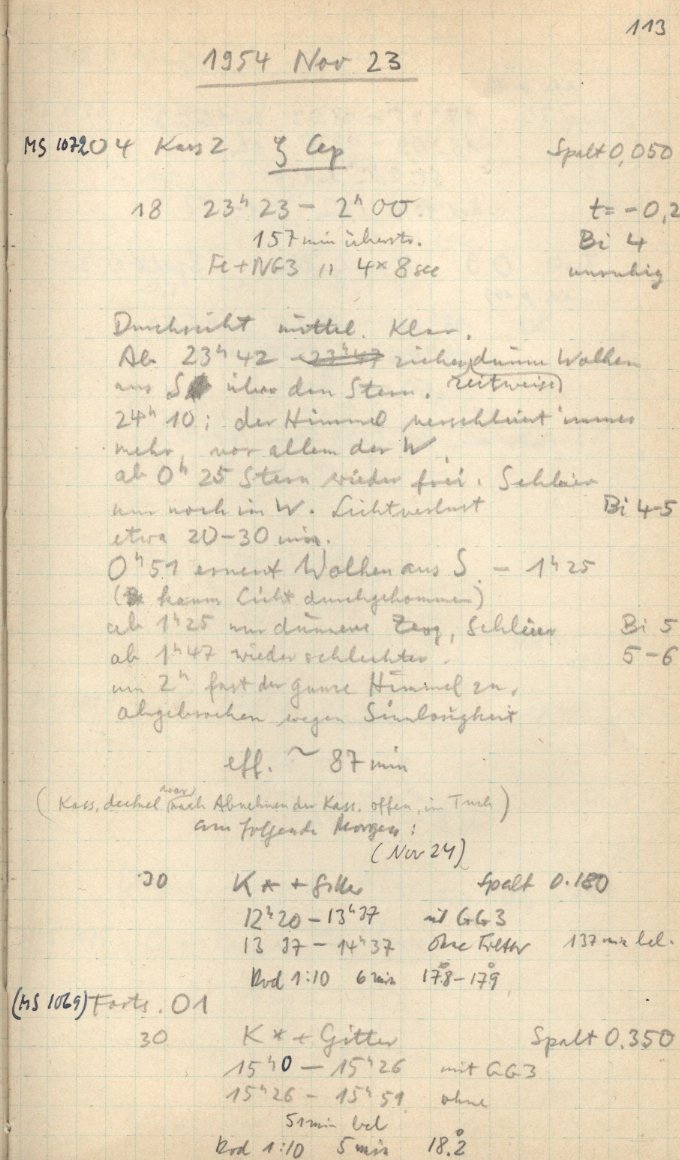 113
1954 Nov 23
MS 1072 04 Kass 2 ζ Cep Spalt 0,050
18 23ʰ 23 – 2ʰ 00 t = -0,2
157 min überstr. Bi 4
Fe + NG3 11 4 × 8 sec unruhig
Durchsicht mittel. Klar.
Ab 23ʰ 42 23ʰ47 ziehen dünne Wolken
aus S über den Stern. zeitweise
24ʰ 10; der Himmel verschleiert immer
mehr, vor allem der W.
ab 0ʰ 25 Stern wieder frei. Schleier
nur noch im W. Lichtverlust Bi 4-5
etwa 20-30 min.
0ʰ 51 erneut Wolken aus S. – 1ʰ 25
(kaum Licht durchgekommen)
ab 1ʰ 25 nur dünneres Zeug, Schleier Bi 5
ab 1ʰ 47 wieder schlechter. 5-6
um 2ʰ fast der ganze Himmel zu.
abgebrochen wegen Sinnlosigkeit
eff. ~ 87 min
(Kass. deckel war nach Abnehmen der Kass. offen, im Tuch)
am folgenden Morgen:
(Nov 24)
30 K * + Gitter Spalt 0.180
12ʰ 20 – 13ʰ 37 mit GG3
13 37 – 14ʰ 37 ohne Filter 137 min bel.
Rod 1:10 6 min 17.8 – 17.9
(MS 1069) Forts. 01
30 K * + Gitter Spalt 0.350
15ʰ 0 – 15ʰ 26 mit GG3
15ʰ 26 – 15ʰ 51 ohne
51 min bel
Rod 1:10 5 min 18.2